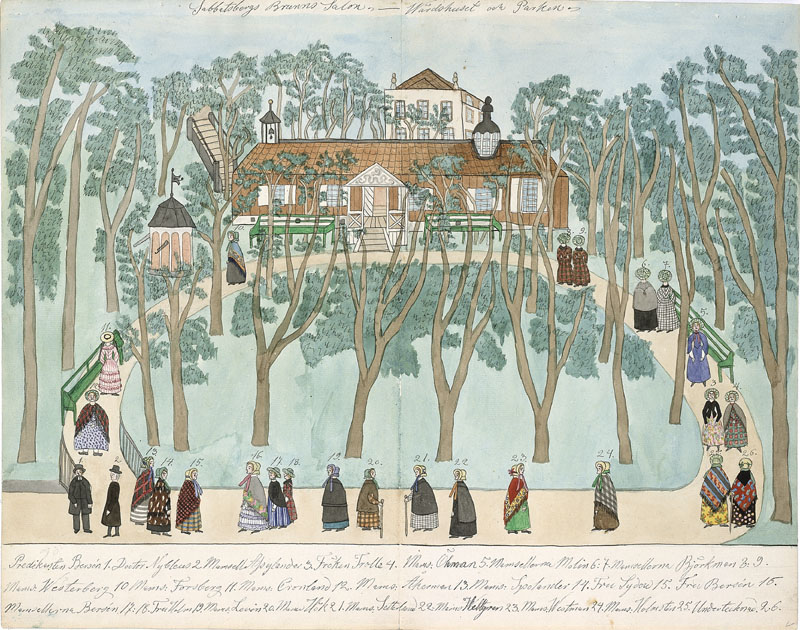 Sabbatsbergs Brunns Salon. — Wärdshuset och Parken.
8. 9.
6. 7.
5.
11.
3. 4.
10.
1. 2. 13. 14. 15. 16. 17. 18. 19. 20. 21. 22. 23. 24. 25. 26.
Predikanten Bersén 1. Doctor Nybleus 2 Mamsell Asylander 3. Fröken Trolle 4. Mams. Öhman 5. Mamsellerna Molin 6. 7. Mamsellerna Björkman 8. 9.
Mams. Westerberg 10 Mams. Forsberg 11. Mams. Cronland 12. Mams. Åkerman 13. Mams. Spolander 14. Fru Sydow 15. Fru Bersén 16.
Mamsellerna Bersén 17. 18. Fru Holm 19. Mams. Levin 20. Mams. Hök 21. Mams. 22. Mams. Wettergren 23. Mams. Westman 24. Mams. Holmster 25. Undertecknad 26.